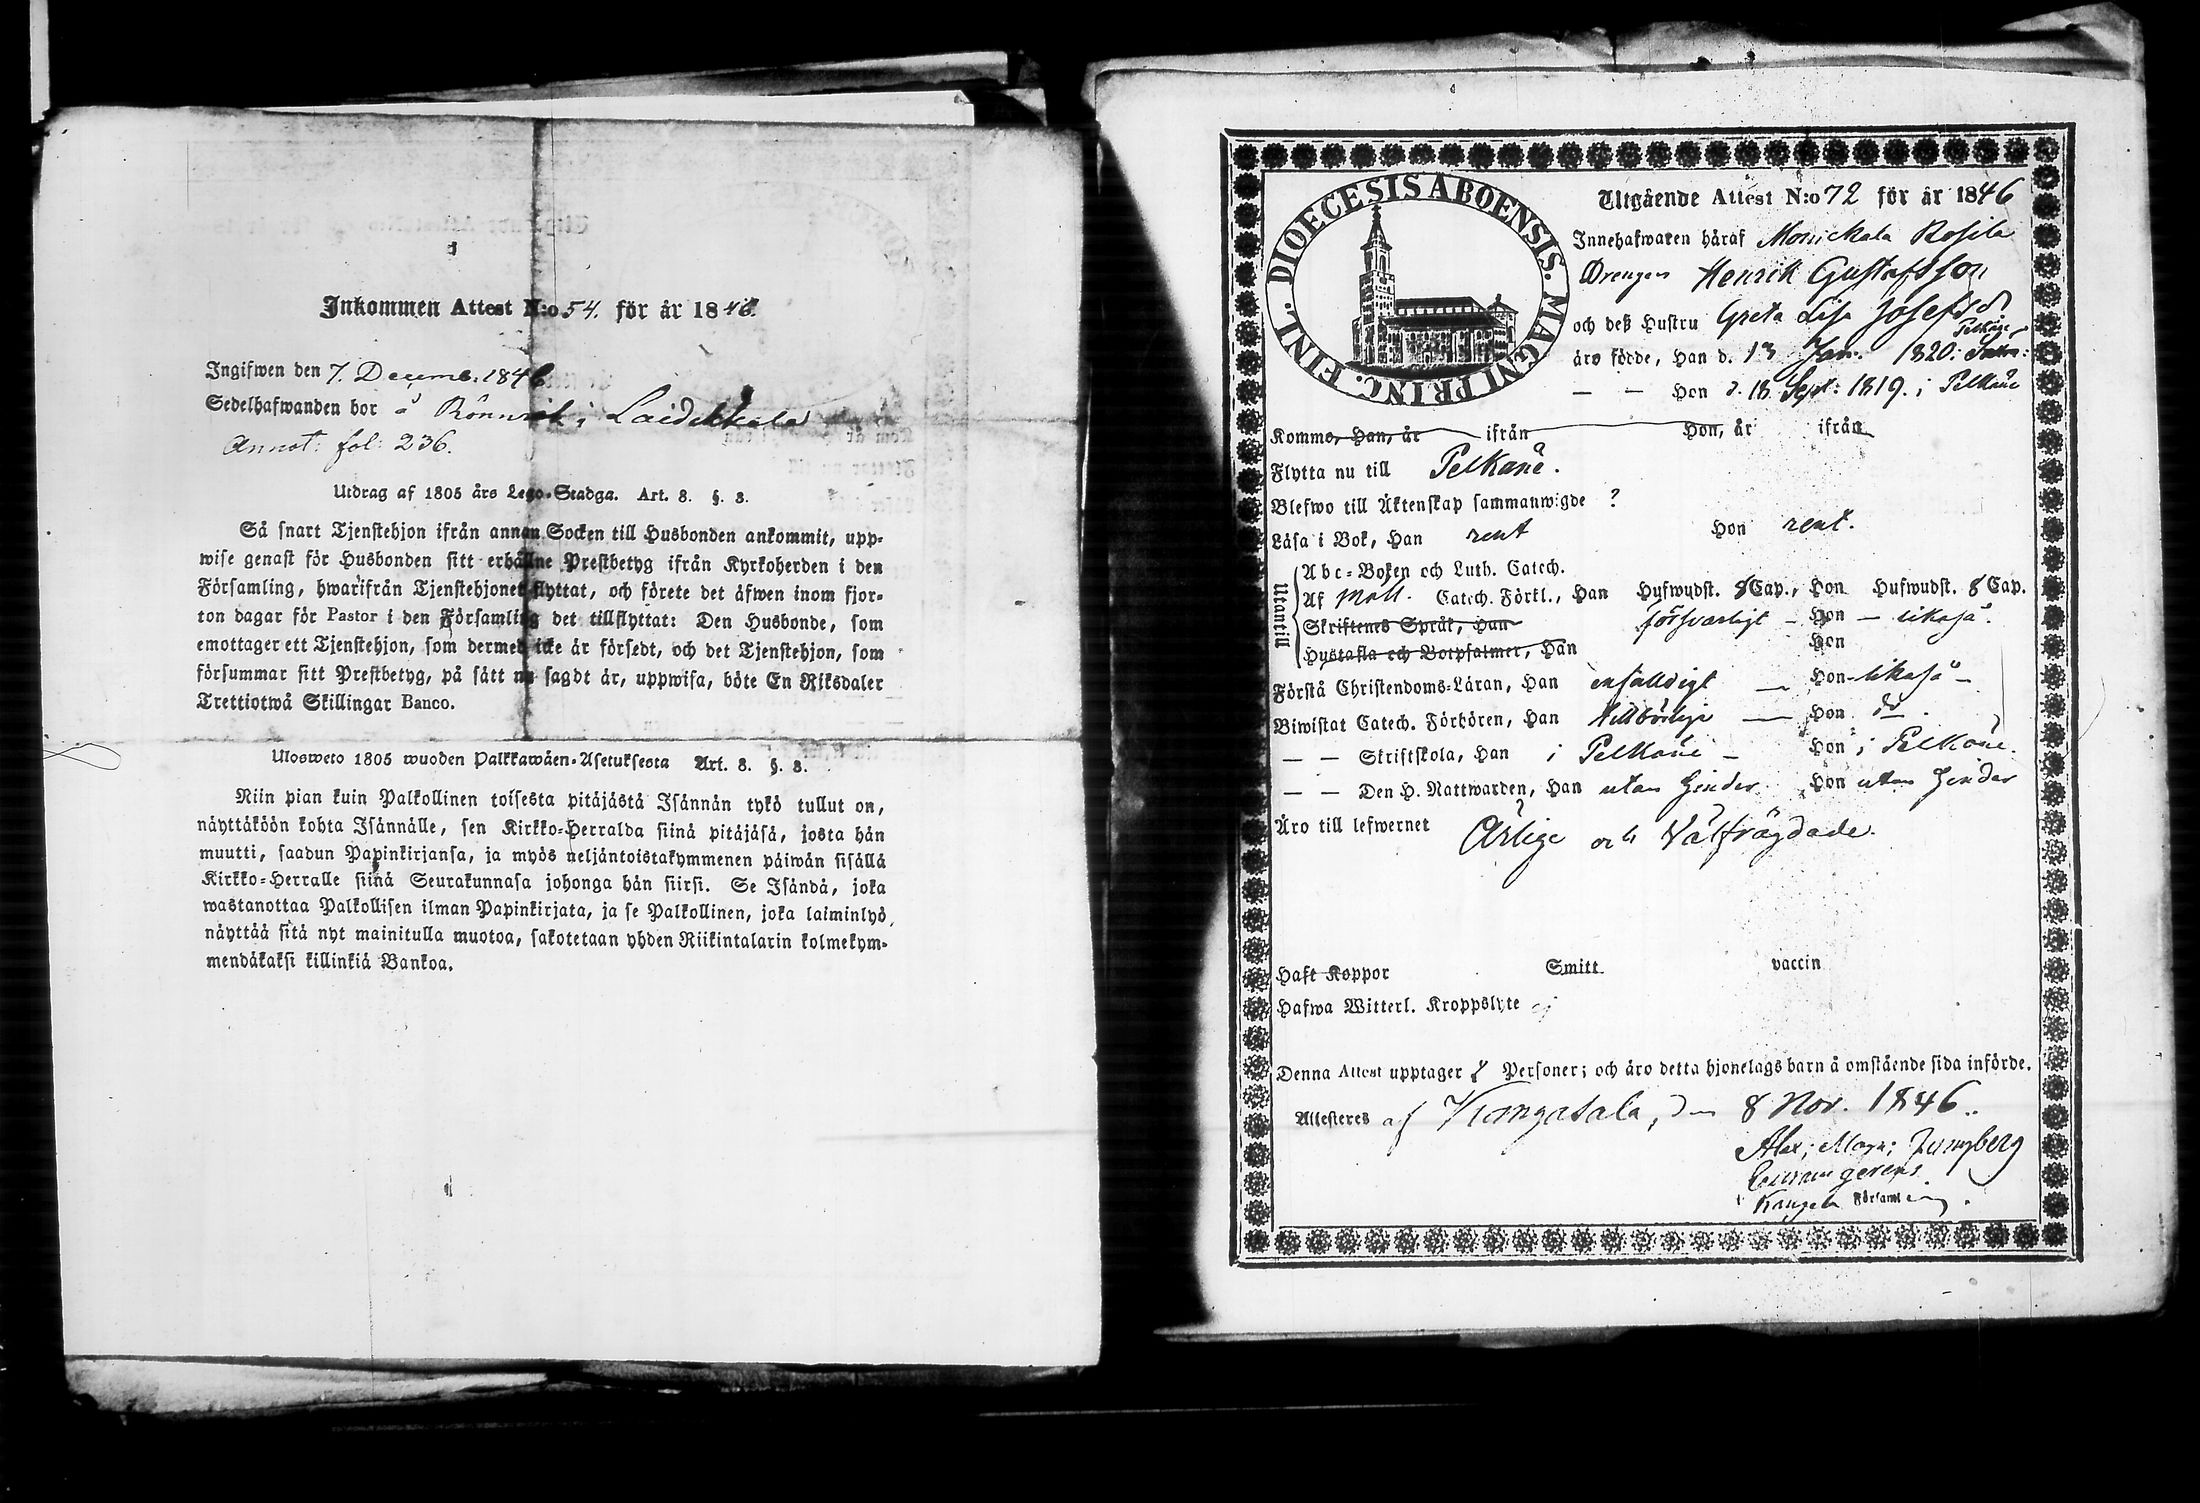 Inkommen Attest N:o 54. för år 1846.
Ingifwen den 7. Decemb. 1846
Sedelhafwanden bor å Rönnvik i Laidikkala
Annot: fol: 236.
Utdrag af 1805 års Lego-Stadga. Art. 8. §. 3.
Så snart Tjenstehjon ifrån annan Socken till Husbonden ankommit, upp-
wise genast för Husbonden sitt erhållne Prestbetyg ifrån Kyrkoherden i den
Församling, hwarifrån Tjenstehjonet flyttat, och förete det äfwen inom fjor-
ton dagar för Pastor i den Församling det tillflyttat: Den Husbonde, som
emottager ett Tjenstehjon, som dermed icke är försedt, och det Tjenstehjon, som
försummar sitt Prestbetyg, på sätt nu sagdt är, uppwisa, böte En Riksdaler
Trettiotwå Skillingar Banco.
Ulosweto 1805 wuoden Palkkawäen-Asetuksesta Art. 8. §. 3.
Niin pian kuin Palkollinen toisesta pitäjästä Isännän tykö tullut on,
näyttäköön kohta Isännälle, sen Kirkko-Herralda siinä pitäjäsä, josta hän
muutti, saadun Papinkirjansa, ja myös neljäntoistakymmenen päiwän sisällä
Kirkko-Herralle siinä Seurakunnasa johonga hän siirsi. Se Isändä, joka
wastanottaa Palkollisen ilman Papinkirjata, ja se Palkollinen, joka laiminlyö
näyttää sitä nyt mainitulla muotoa, sakotetaan yhden Riikintalarin kolmekym-
mendäkaksi killinkiä Bankoa.
DIOECESIS ABOENSIS. MAGNI PRINC. FINL.
Utgående Attest N:o 72 för år 1846
Innehafwaren häraf Monickala Rosila
Drengen Henrik Gustafsson
och deß Hustru Greta Lisa Josefsd.
Pelkäne
äro födde, Han d. 13 Jan. 1820.
— — Hon d. 18 Sept. 1819. i Pelkäne
Komme, Han, år ifrån Hon, år ifrån
Flytta nu till Pelkäne.
Blefwo till Äktenskap sammanwigde ?
Läsa i Bok, Han rent Hon rent.
Utantill
Abc-Boken och Luth. Catech.
Af Moll. Catech. Förkl., Han Hufwudst. 8 Cap., Hon Hufwudst. 8 Cap.
Skriftenes Språk, Han försvarligt — Hon — likaså.
Hustafla och Botpsalmer, Han Hon
Förstå Christendoms-Läran, Han enfaldigt — Hon - likaså -
Biwistat Catech. Förhören, Han tillbörlige — Hon do.
— — Skriftskola, Han i Pelkäne — Hon i Pelkäne.
— — Den H. Nattwarden, Han utan hinder Hon utan hinder
Äro till lefwernet Ärlige och Välfrägdade.
Haft Koppor Smitt vaccin
Hafwa Witterl. Kroppslyte ej
Denna Attest upptager 2 Personer; och äro detta hjonelags barn å omstående sida införde.
Attesteres af Kangasala, den 8 Nov. 1846.
Alex: Magn: Ljungberg
Församling.